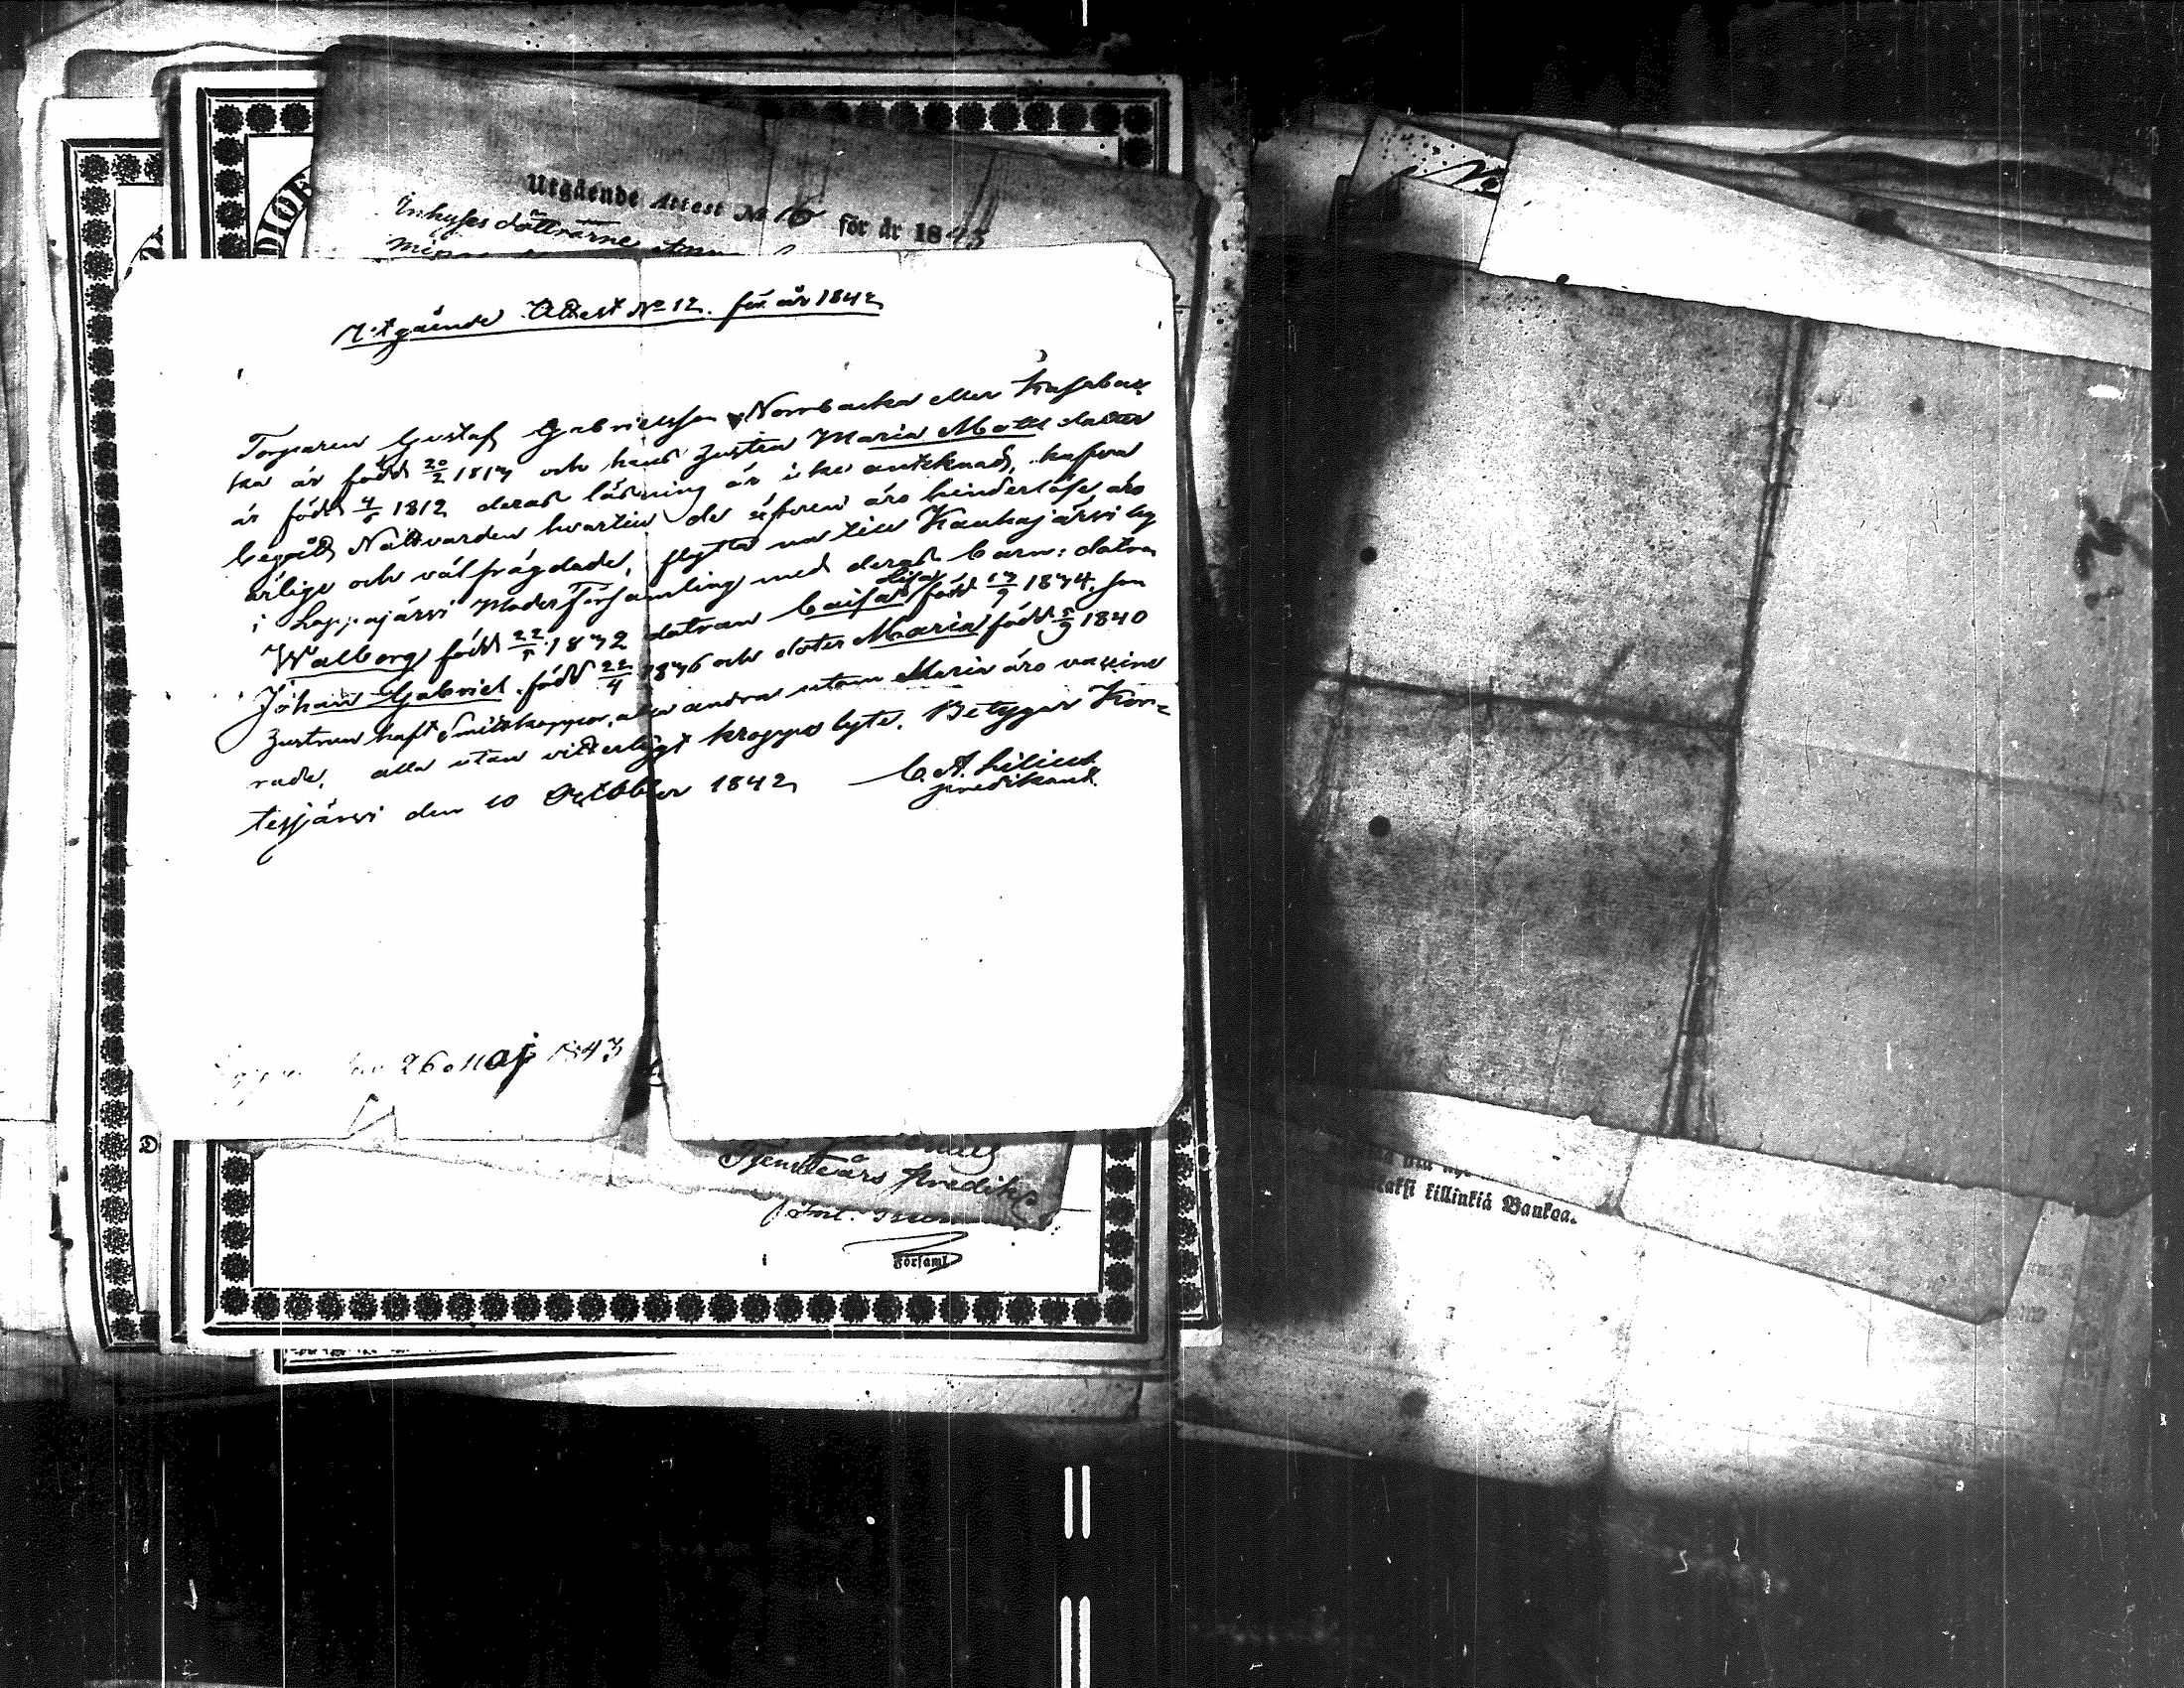 Utgående Attest № 16 för år 1843
Inhyses döttrarne
Utgående Attest № 12. för år 1842
Torparen Gustaf Gabrielsson Norrbacka eller Kasabac
ka är född 20/2 1813 och hans hustru Maria Matts dotter
är född 4/5 1812 deras läsning är icke anteknad, hafva
begått Nattvarden hvartill de äfven äro hinderlöse, äro
ärlige och välfrägdade, flytta nu till Kauhajärvi by
i Lappajärvi Moderförsamling med deras barn: dotren
Walborg född 22/5 1832 dotren Caisa Lisa född 13/9 1834, son
Johan Gabriel född 22/4 1836 och doter Maria född 5/9 1840
hustrun haft Småkoppor, alla andra utom Maria äro vaccine
rade, alla utan vitterligt kropps lyte. Betygar Kor=
tesjärvi den 10 October 1842
C. A. Lilius
predikant.
26 Maj 1843
Församl.
killinkiä Bankoa.
No